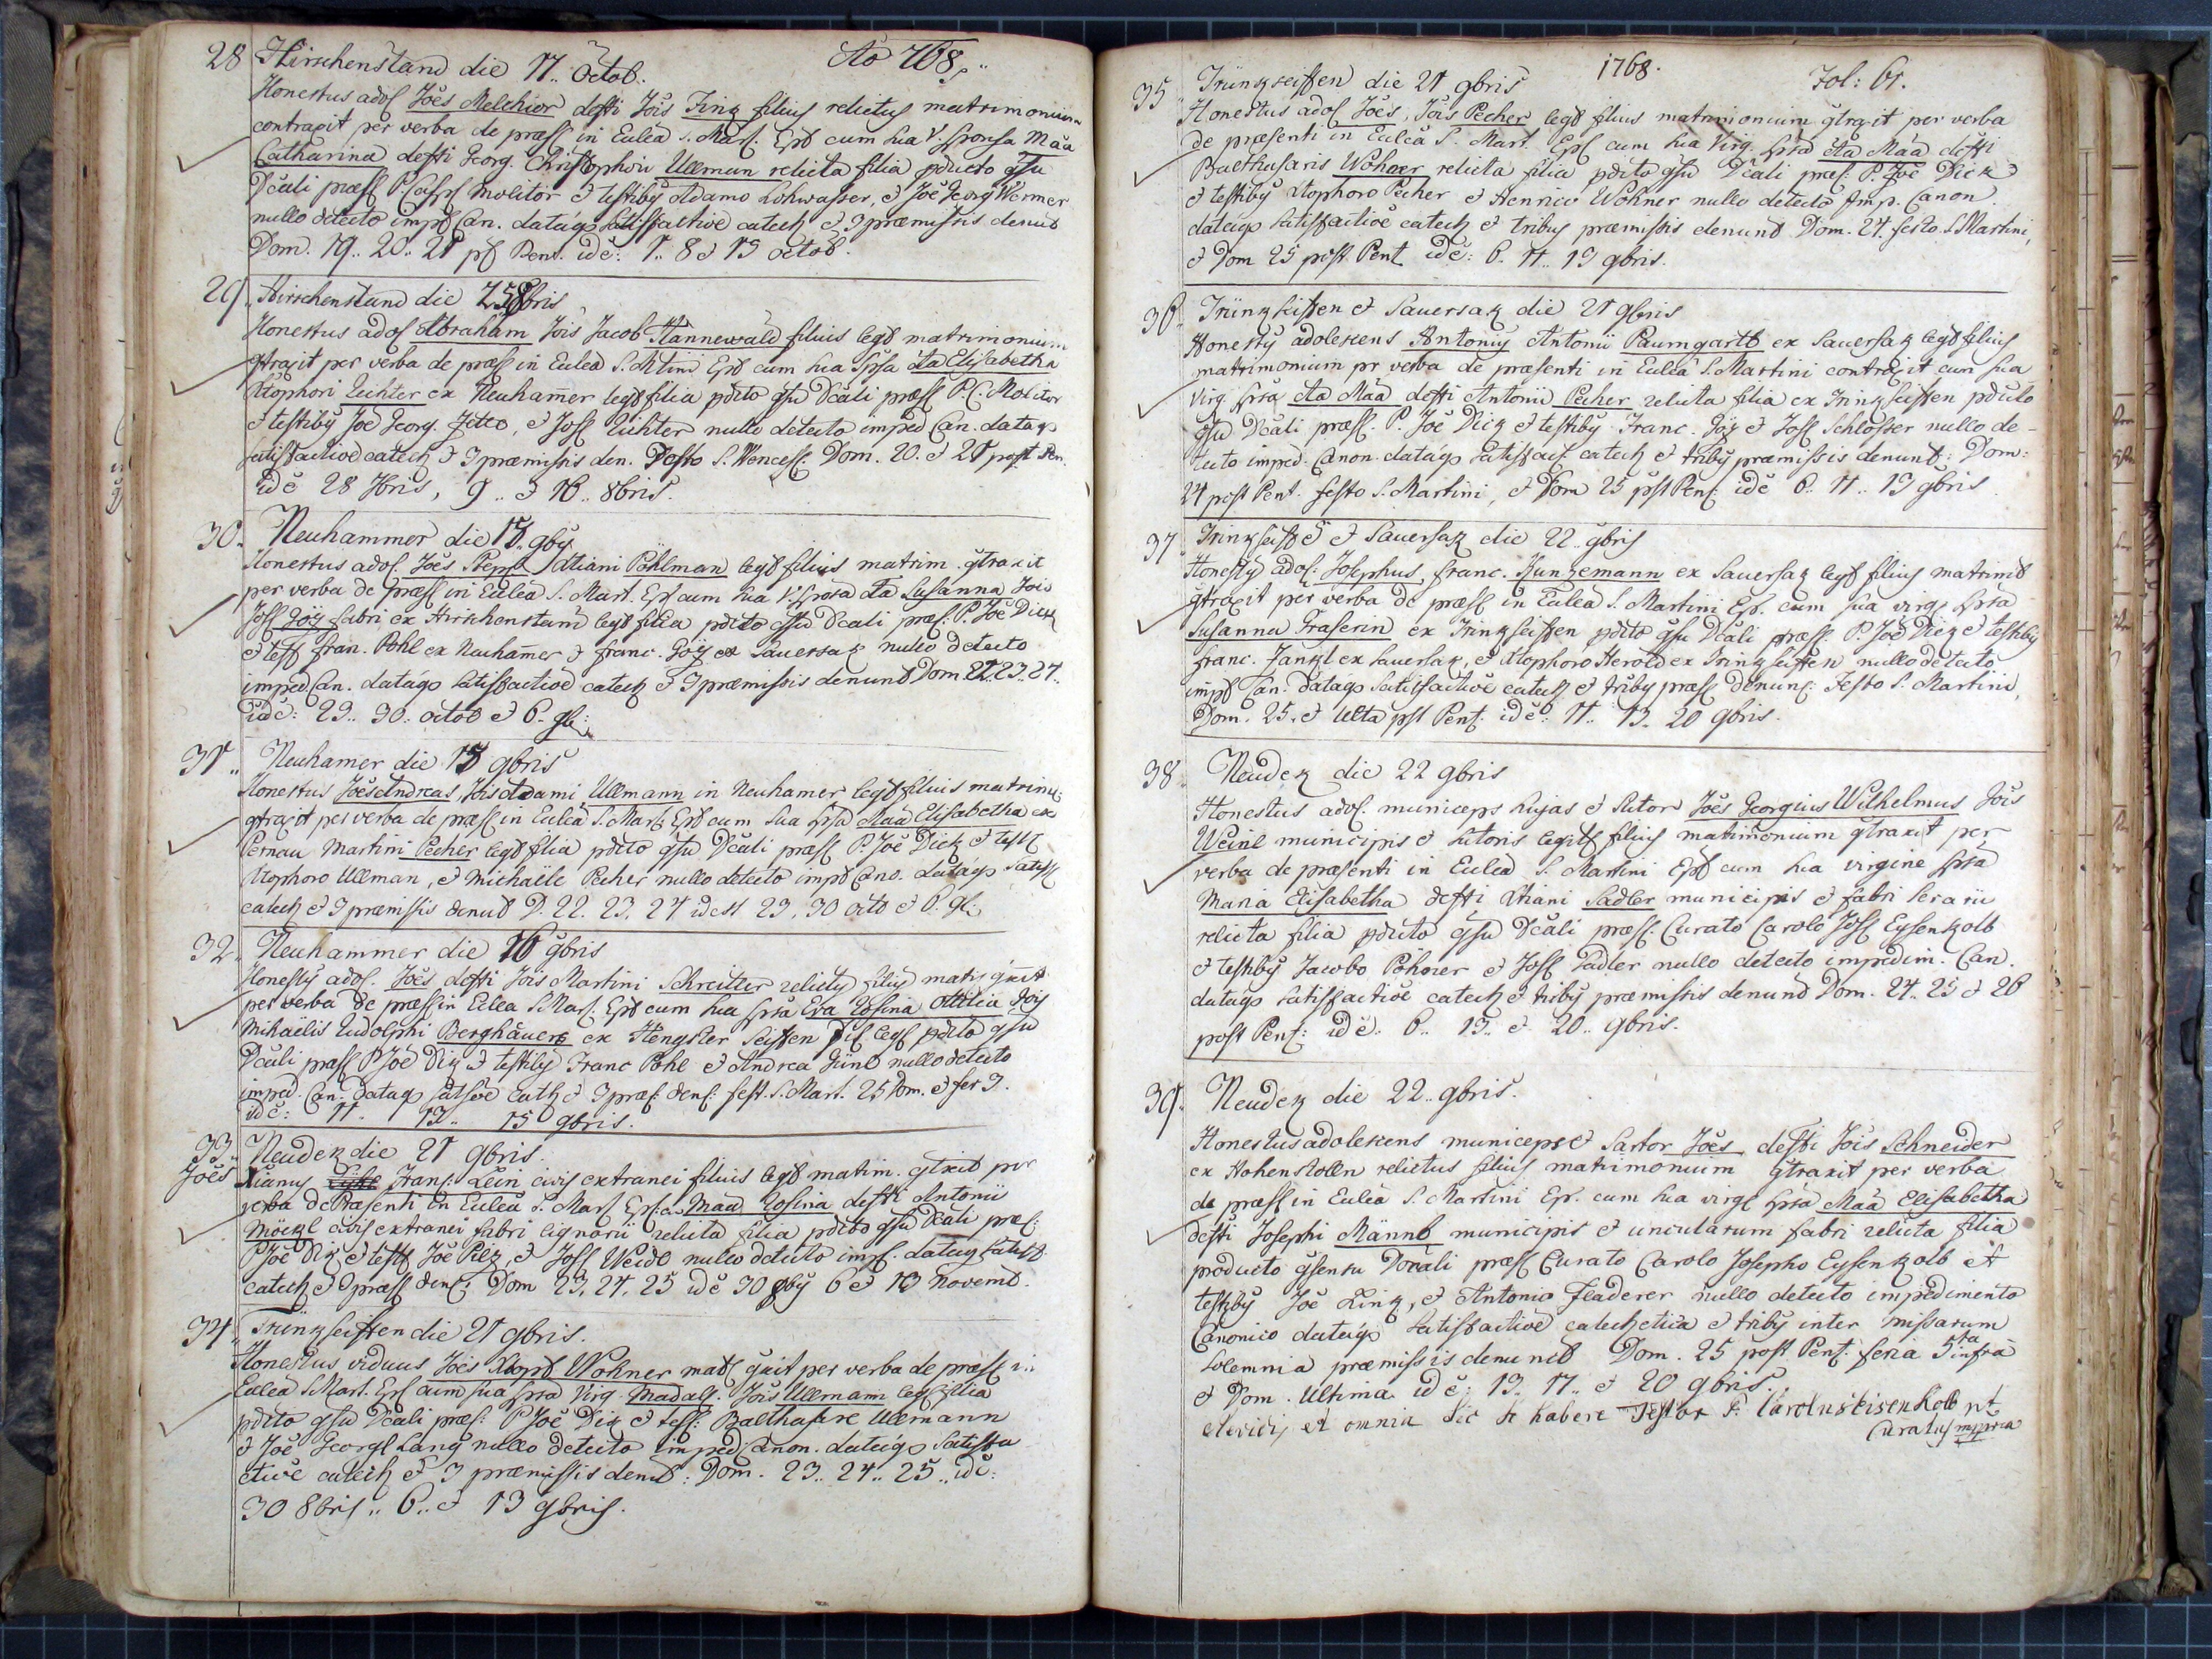 Ao 768.
28 Hirschenstand die 17. Octob.
Honestus adol Joes Melchior defti Jois Zinz filius relictus matrimonium
contraxit per verba de præs in Eulea S. Mart. Epō cum sua V. sponsa Maa
Catharina defti Georg. Christophori Ullman relicta filia pducto gsu
Dcali præs P. Molitor & testibz Adamo Lohwasser, & Joe Georg Werner
nullo detecto imp Can. dataqz satisfactioe catech & 3 præmissis denut
Dom. 19. 20. 21 pt Pent. ide: 1. 8 & 15 octob.
29. Hirschenstand die 25 8bris
Honestus adol Abraham Jois Jacob Hannewald filius legt matrimonium
gtraxit per verba de præs in Eulea S. Mtini Epō cum sua Spsa Aa Elisabetha
Xtophori Lichter ex Neuhamer legt filia pdito gsu Dcali præs P. C. Molitor
& testibz Joe Georg. , & Jos Lichter nullo detecto imped Can. dataqz
satisfactioe catech & 3 præmissis den. Festo S. Wences Dom. 20. & 21 post Pen.
ide 28 7bris, 9. & 16. 8bris.
30. Neuhammer die 15. gbz
Honestus adol. Joes Pöhlman legt filius matrim. gtraxit
per verba de præs in Eulea S. Mart. Ep cum sua V. sposa Aa Susanna Jois
Jos Jöz fabri ex Hirschenstand legt filia pdito gsu Dcali præs: P. Joe Dick
& test fran. Pohl ex Neuhamer & franc. Göz ex Sauersak nullo detecto
imped Can. dataqz satisfactioe catech & 3 præmissis denunt Dom 22. 23. 24.
ide: 23. 30. octob & 6. gb:
31. Neuhamer die 15 gbris
Honestus Joes Andreas, Jois Adami Ullmann in Neuhamer legt filius matrim
gtraxit per verba de præs in Eulea S. Mart Epō cum sua spsa Maa Elisabetha ex
Pernau Martini Pecher legt filia pdito gsu Dcali præs P. Joe Dick & test
Xtophoro Ullman, & Michaele Pecher nullo detecto impd Cano. dataqz satisf
catech & 3 præmissis denut D. 22. 23. 24 idest 23, 30 octo & 6. gb:
32. Neuhammer die 16 gbris
Honestz adol. Joes defti Jois Martini Schreitter relictz filiz mat
per verba de præs in Eulea S. Mar. Epō cum sua spsa Eva Rosina Jois
Michaelis Rudolphi Berghäuer ex Hengsler Seiffen fil leg pdito gsu
Dcali præs P. Joe Diz & testibz Franc Pohl & Andrea nullo detecto
imped. Can. dataqz satisoe cath & 3 præs: den: fest. S. Mart. 25 Dom. & fer 3.
ide: 11. 13. 15 gbris.
33. Neudek die 21 gbris.
Joes Xianz Franz: Lein civis extranei filius legt matrim. gtxit per
verba de Præsenti in Eulea S. Mart Ep. c. Maa Rosina defti Antonii
Möckl civis extranei fabri lignarii relicta filia pdito gsu Dcali præs:
P. Joe Diz & test Joe Pelz, & Jos Weidl nullo detecto imp. dataqz satisf
catech & 3 præs den: Dom 23, 24, 25 ide 30 8bz 6 & 13 Novemb.
34. Trünkseiffen die 21 gbris.
Honestus viduus Jois Xtoph Wohner mat gxit per verba de præs i:
Eulea S. Mart. Ep cum sua spsa Virg. Madal. Jois Ullmann leg filia
pdito gsu Dcali præs: P. Joe Diz & tes: Balthasare Ullmann
& Joe Georg Lang nullo detecto imped Canon. dataqz satisfa
ctioe catech & 3 præmissis denut: Dom. 23. 24. 25. ide:
30 8bris. 6. & 13 gbris.
1768. Fol: 61.
35. Trünkseiffen die 21 gbris
Honestus adol Joes, Jois Pecher legt filius matrimonium gtraxit per verba
de præsenti in Eulea S. Mart. Ep cum sua Virg. spsa Aa Maa defti
Balthasaris Wohner relicta filia pdito gsu Dcali præs. P. Joe Dick
& testibz Xtophoro Pecher & Henrico Wohner nullo detecto Imp. Canon.
dataqz satisfactioe catech & tribus præmissis denunt Dom. 24. festo S Martini,
& Dom 25 post Pent ide: 6. 11. 13 gbris.
36. Trünkseiffen & Sauersak die 21 gbris
Honestz adolescens Antonius Antonii Paumgartl ex Sauersak legt filius
matrimonium pr verba de præsenti in Eulea S. Martini contraxit cum sua
Virg. spsa Aa Maa defti Antonii Pecher relicta filia ex Trinkseiffen pducto
gsu Dcali præs. P. Joe Dick & testibz Franc. Göz & Jos Schlosser nullo de-
tecto imped. Canon. dataqz satisfact catech & tribz præmissis denunt: Dom:
24 post Pent. festo S. Martini, & Dom 25 pst Pent: ide 6. 11. 13 gbris
37. Trinkseiff & Sauersak die 22. gbris
Honestz adol. Josephus franc. Kunzemann ex Sauersak legt filius matrimo
gtraxit per verba de præs in Eulea S. Martini Ep. cum sua virg spsa
Susanna Graserin ex Trinkseiffen pdito gsu Dcali præs. P. Joe Dick & testibz
franc. Jankl ex Sauersak, & Xtophoro Herold ex Trinkseiffen nullo detecto
imp Can. dataqz satisfactioe catech & tribz præs denun: Festo S. Martini,
Dom. 25. & Ulta pst Pent: ide: 11. 13. 20 gbris.
38. Neudek die 22 gbris
Honestus adol. municeps hujas & Sutor Joes Georgius Wilhelmus Jois
Weinl municipis & Sutoris legit filius matrimonium gtraxit per
verba de præsenti in Eulea S. Martini Epō cum sua virgine spsa
Maria Elisabetha defti Xtiani Sadler municipis & fabri serarii
relicta filia pducto gsu Dcali præs. Curato Carolo Jos Eysenkolb
& testibz Jacobo Pöhner & Jos Sadler nullo detecto impedim. Can.
dataqz satisfactioe catech & tribz præmissis denund Dom. 24. 25 & 26
post Pent: ide: 6. 13. & 20. gbris.
39. Neudek die 22. gbris.
Honestus adolescens municeps & Sartor Joes defti Jois Schneider
ex Hohenstolln relictus filius matrimonium gtraxit per verba
de præs in Eulea S. Martini Ep. cum sua virg spsa Maa Elisabetha
defti Josephi Männl municipis & uncularum fabri relicta filia
producto gsensu Dorali præs Curato Carolo Josepho Eysenkolb et
testibz Joe Link, & Antonio Fladerer nullo detecto impedimento
Canonico dataqz satisfactioe catechetica & tribz inter missarum
solemnia præmissis denunt Dom. 25 post Pent: feria 5ta infra
& Dom. Ultima ide: 13. 17. & 20 gbris
et omnia sic se habere Testor P. Carolus Eisenkolb pt
Curatus mppria